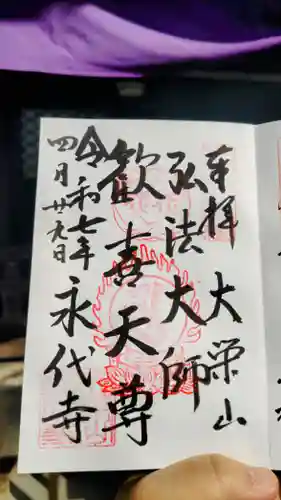 奉拝 大栄山
弘法大師
歓喜天尊
令和七年 永代寺
四月廿九日